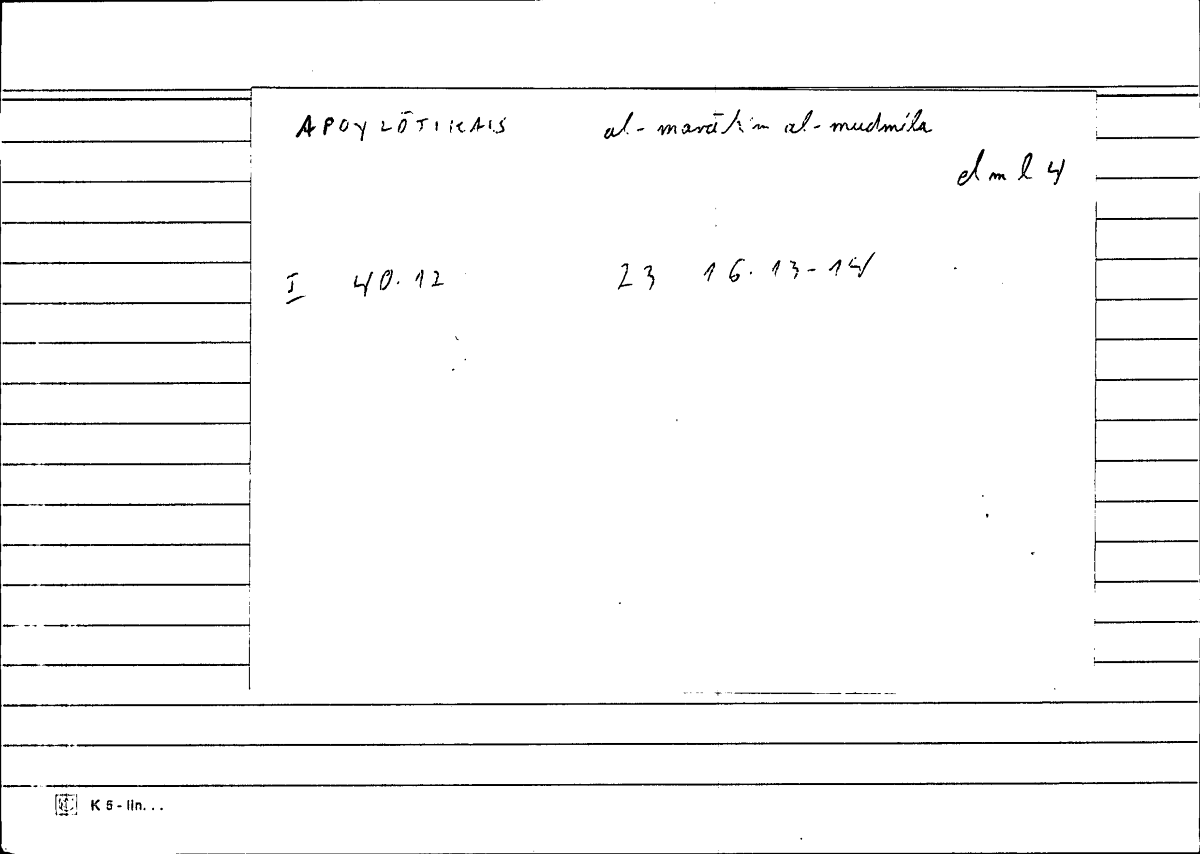 APOYLŌTIKAIS al-marāhim al-mudmila
dml 4
I 40.12 23 16.13-14
K 5 - lin. . .